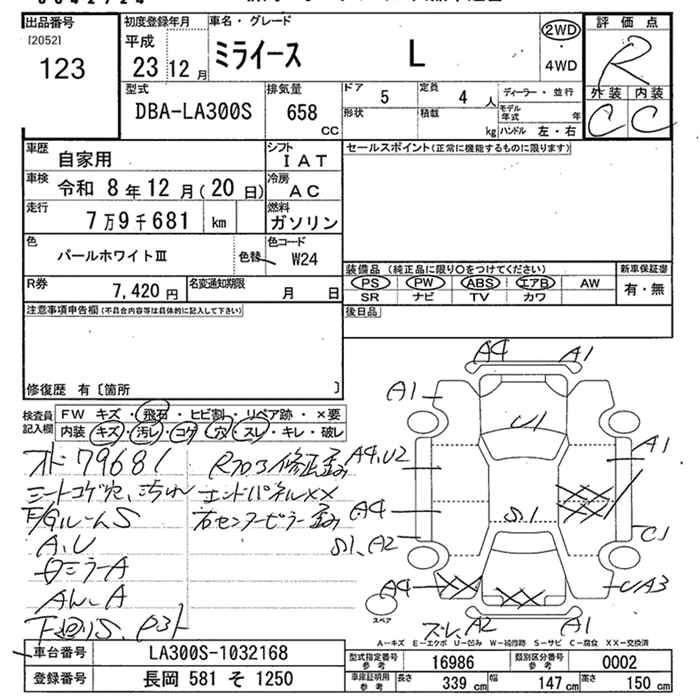 出品番号
[2052]
123
初度登録年月
平成
23 12 月
車名・グレード
ミライース L
2WD
・
4WD
評価点
R
外装 内装
C C
型式
DBA-LA300S
排気量
658 CC
ドア 5
定員 4 人
形状
積載 kg
ディーラー・並行
モデル年式 年
ハンドル 左・右
車歴
自家用
シフト
IAT
セールスポイント(正常に機能するものに限ります)
車検
令和 8年 12月(20日)
冷房
AC
走行
7万9千681 km
燃料
ガソリン
色
パールホワイトⅢ
色替
色コード
W24
装備品 (純正品に限り○をつけてください)
新車保証書
PS PW ABS エアB AW
SR ナビ TV カワ
有・無
後日品
R券
7,420 円
名変通知期限
月 日
注意事項申告欄(不具合内容等は具体的に記入して下さい)
修復歴 有〔箇所 〕
検査員記入欄
FW キズ・飛石・ヒビ割・リペア跡・×要
内装・キズ・汚レ・コゲ・穴・スレ・キレ・破レ
オド79681
シートコゲ穴、汚れ
A、U
ミラーA
下廻りS、
修正歪み
エンドパネルXX
右センターピラー歪み
A4 A1
A1
U1
A4、U2
A1
XX
A4
S1
S1、A2
C1
A4
XX
XX
UA3
スペア
スレ、A2 A1
A－キズ E－エクボ U－凹み W－補修跡 S－サビ C－腐食 XX－交換済
車台番号
LA300S-1032168
登録番号
長岡 581 そ 1250
型式指定番号
参考
16986
類別区分番号
参考
0002
車庫証明用
参考
長さ 339 cm
幅 147 cm
高さ 150 cm